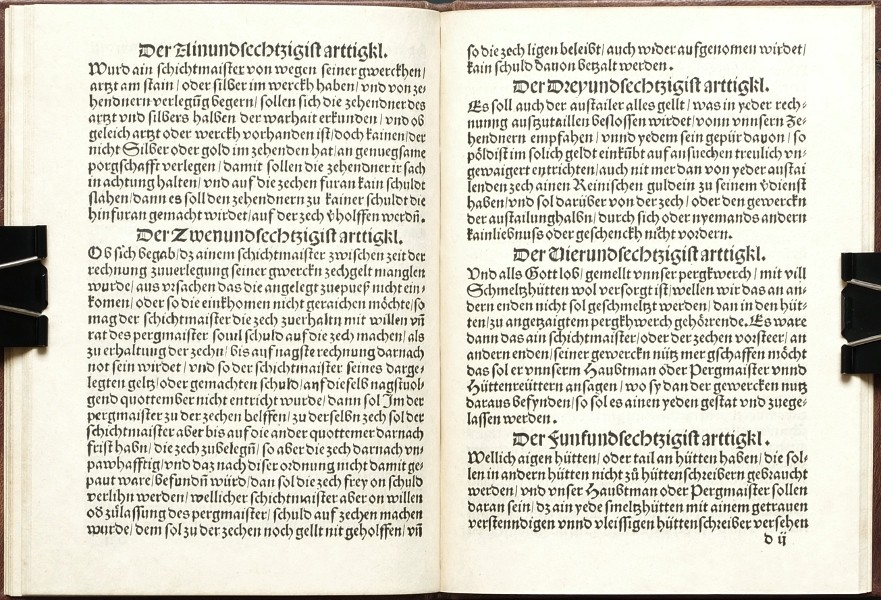 Der Ainundsechtzigist arttigkl.
Wurd ain schichtmaister von wegen seiner gwerckhen /
artzt am stain / oder silber im werckh haben / vnd von ze⸗
hendnern verlegũg begern / sollen sich die zehendner des
artzt vnd silbers halben der warhait erkunden / vnd ob
geleich artzt oder werckh vorhanden ist / doch kainen / der
nicht Silber oder gold im zehenden hat / an genuegsame
porgschafft verlegen / damit sollen die zehendner ir sach
in achtung halten / vnd auf die zechen furan kain schuldt
slahen / dann es soll den zehendnern zu kainer schuldt die
hinfuran gemacht wirdet / auf der zech v̈holffen werdñ.
Der Zwenundsechtzigist arttigkl.
Ob sich begab / dz ainem schichtmaister zwischen zeit der
rechnung zuuerlegung seiner gwerckn zechgelt manglen
wurde / aus vrsachen das die angelegt zuepueß nicht ein⸗
komen / oder so die einkhomen nicht geraichen möchte / so
mag der schichtmaister die zech zuerhaltn mit willen vñ
rat des pergmaister souil schuld auf die zech machen / als
zu erhaltung der zechn / bis auf nagste rechnung darnach
not sein wirdet / vnd so der schichtmaister seines darge⸗
legten geltz / oder gemachten schuld / auf dieselb nagstuol⸗
gend quottember nicht entricht wurde / dann sol Im der
pergmaister zu der zechen helffen / zu derselbn zech sol der
schichtmaister aber bis auf die ander quottemer darnach
frist habn / die zech zubelegñ / so aber die zech darnach vn⸗
pawhafftig / vnd daz nach diser ordnung nicht damit ge⸗
paut ware / befundñ würd / dan sol die zech frey on schuld
verlihn werden / wellicher schichtmaister aber on willen
od zůlassung des pergmaister / schuld auf zechen machen
wurde / dem sol zu der zechen noch gellt nit geholffen / vñ
so die zech ligen beleibt / auch wider aufgenomen wirdet /
kain schuld dauon betzalt werden.
Der Dreyundsechtzigist arttigkl.
Es soll auch der austailer alles gellt / was in yeder rech⸗
nunng auszutaillen beslossen wirdet / vonn vnnsern Ze⸗
hendnern empfahen / vnnd yedem sein gepür dauon / so
pöldist im solich geldt einkũbt auf ansuechen treulich vn⸗
gewaigert entrichten / auch nit mer dan von yeder austai
lenden zech ainen Reinischen guldein zu seinem v̈dienst
haben / vnd sol darüber von der zech / oder den gewerckn
der austailunghalbn / durch sich oder nyemands andern
kainliebnuss oder geschenckh nicht vordern.
Der Vierundsechtzigist arttigkl.
Vnd alls Gott lob / gemellt vnnser pergkwerch / mit vill
Schmeltzhütten wol versorgt ist / wellen wir das an an⸗
dern enden nicht sol geschmeltzt werden / dan in den hüt⸗
ten / zu angetzaigtem pergkhwerch gehörrende. Es ware
dann das ain schichtmaister / oder der zechen vorsteer / an
andern enden / seiner gewerckn nütz mer gschaffen möcht
das sol er vnnserm Haubtman oder Pergmaister vnnd
Hüttenreüttern ansagen / wo sy dan der gewercken nutz
daraus befynden / so sol es ainen yeden gestat vnd zuege⸗
lassen werden.
Der Funfundsechtzigist arttigkl.
Wellich aigen hütten / oder tail an hütten haben / die sol⸗
len in andern hütten nicht zů hüttenschreibern gebraucht
werden / vnd vnser Haubtman oder Pergmaister sollen
daran sein / dz ain yede smeltzhütten mit ainem getrauen
verstenndigen vnnd vleissigen hüttenschreiber versehen
d ij